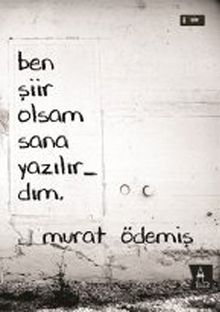 ben
şiir
olsam
sana
yazılır_
dım.
murat ödemiş